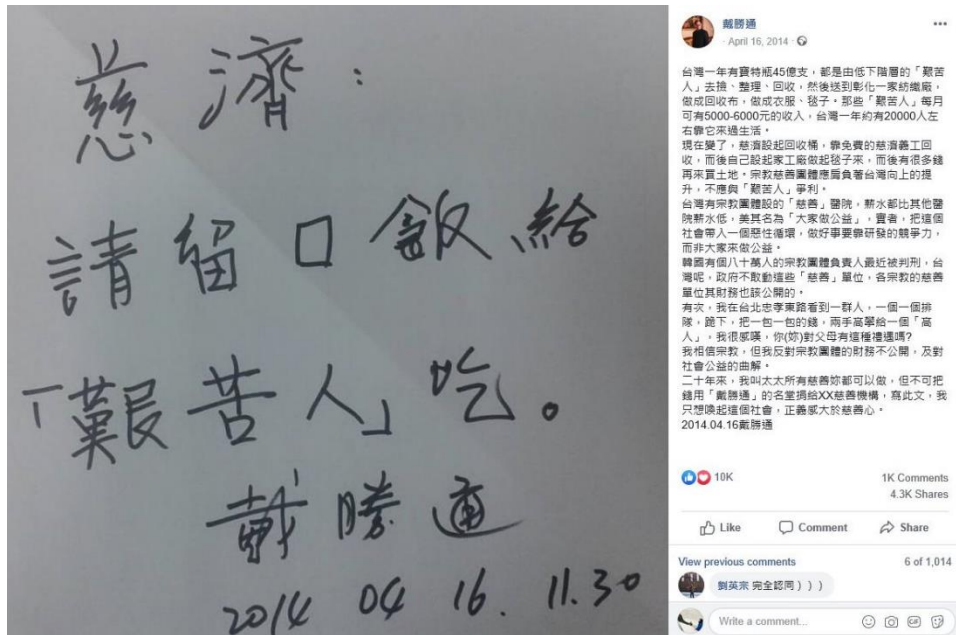 慈濟：
請留口飯給
「艱苦人」吃。
戴勝通
2014 04 16. 11.30
戴勝通
April 16, 2014
台灣一年有寶特瓶45億支，都是由低下階層的「艱苦
人」去撿、整理、回收，然後送到彰化一家紡織廠，
做成回收布，做成衣服、毯子。那些「艱苦人」每月
可有5000-6000元的收入，台灣一年約有20000人左
右靠它來過生活。
現在變了，慈濟設起回收桶，靠免費的慈濟義工回
收，而後自己設起家工廠做起毯子來，而後有很多錢
再來買土地。宗教慈善團體應肩負著台灣向上的提
升，不應與「艱苦人」爭利。
台灣有宗教團體設的「慈善」醫院，薪水都比其他醫
院薪水低，美其名為「大家做公益」，實者，把這個
社會帶入一個惡性循環，做好事要靠研發的競爭力，
而非大家來做公益。
韓國有個八十萬人的宗教團體負責人最近被判刑，台
灣呢，政府不敢動這些「慈善」單位，各宗教的慈善
單位其財務也該公開的。
有次，我在台北忠孝東路看到一群人，一個一個排
隊，跪下，把一包一包的錢，兩手高擧給一個「高
人」，我很感嘆，你(妳)對父母有這種禮遇嗎?
我相信宗教，但我反對宗教團體的財務不公開，及對
社會公益的曲解。
二十年來，我叫太太所有慈善妳都可以做，但不可把
錢用「戴勝通」的名堂捐給XX慈善機構，寫此文，我
只想喚起這個社會，正義感大於慈善心。
2014.04.16戴勝通
10K
1K Comments
4.3K Shares
Like Comment Share
View previous comments 6 of 1,014
劉英宗 完全認同）））
Write a comment...
GIF